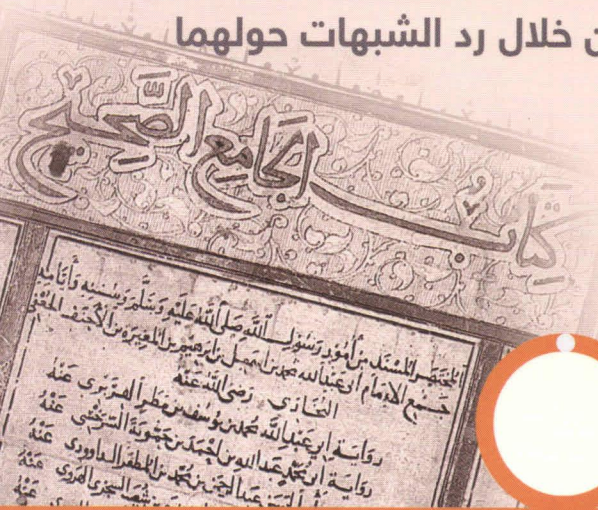 ن خلال رد الشبهات حولهما
كتاب الجامع الصحيح
المختصر المسند من أمور رسول الله صلى الله عليه وسلم وسننه وأيامه
جمع الإمام أبي عبد الله محمد بن إسمعيل بن إبرهيم بن المغيرة بن الأحنف الجعفي
البخاري رضي الله عنه
رواية أبي عبد الله محمد بن يوسف بن مطر الفربري عنه
رواية أبي محمد عبد الله بن أحمد بن حمويه السرخسي عنه
عبد الرحمن بن محمد بن المظفر الداودي عنه
شعيب السجزي الهروي عنه